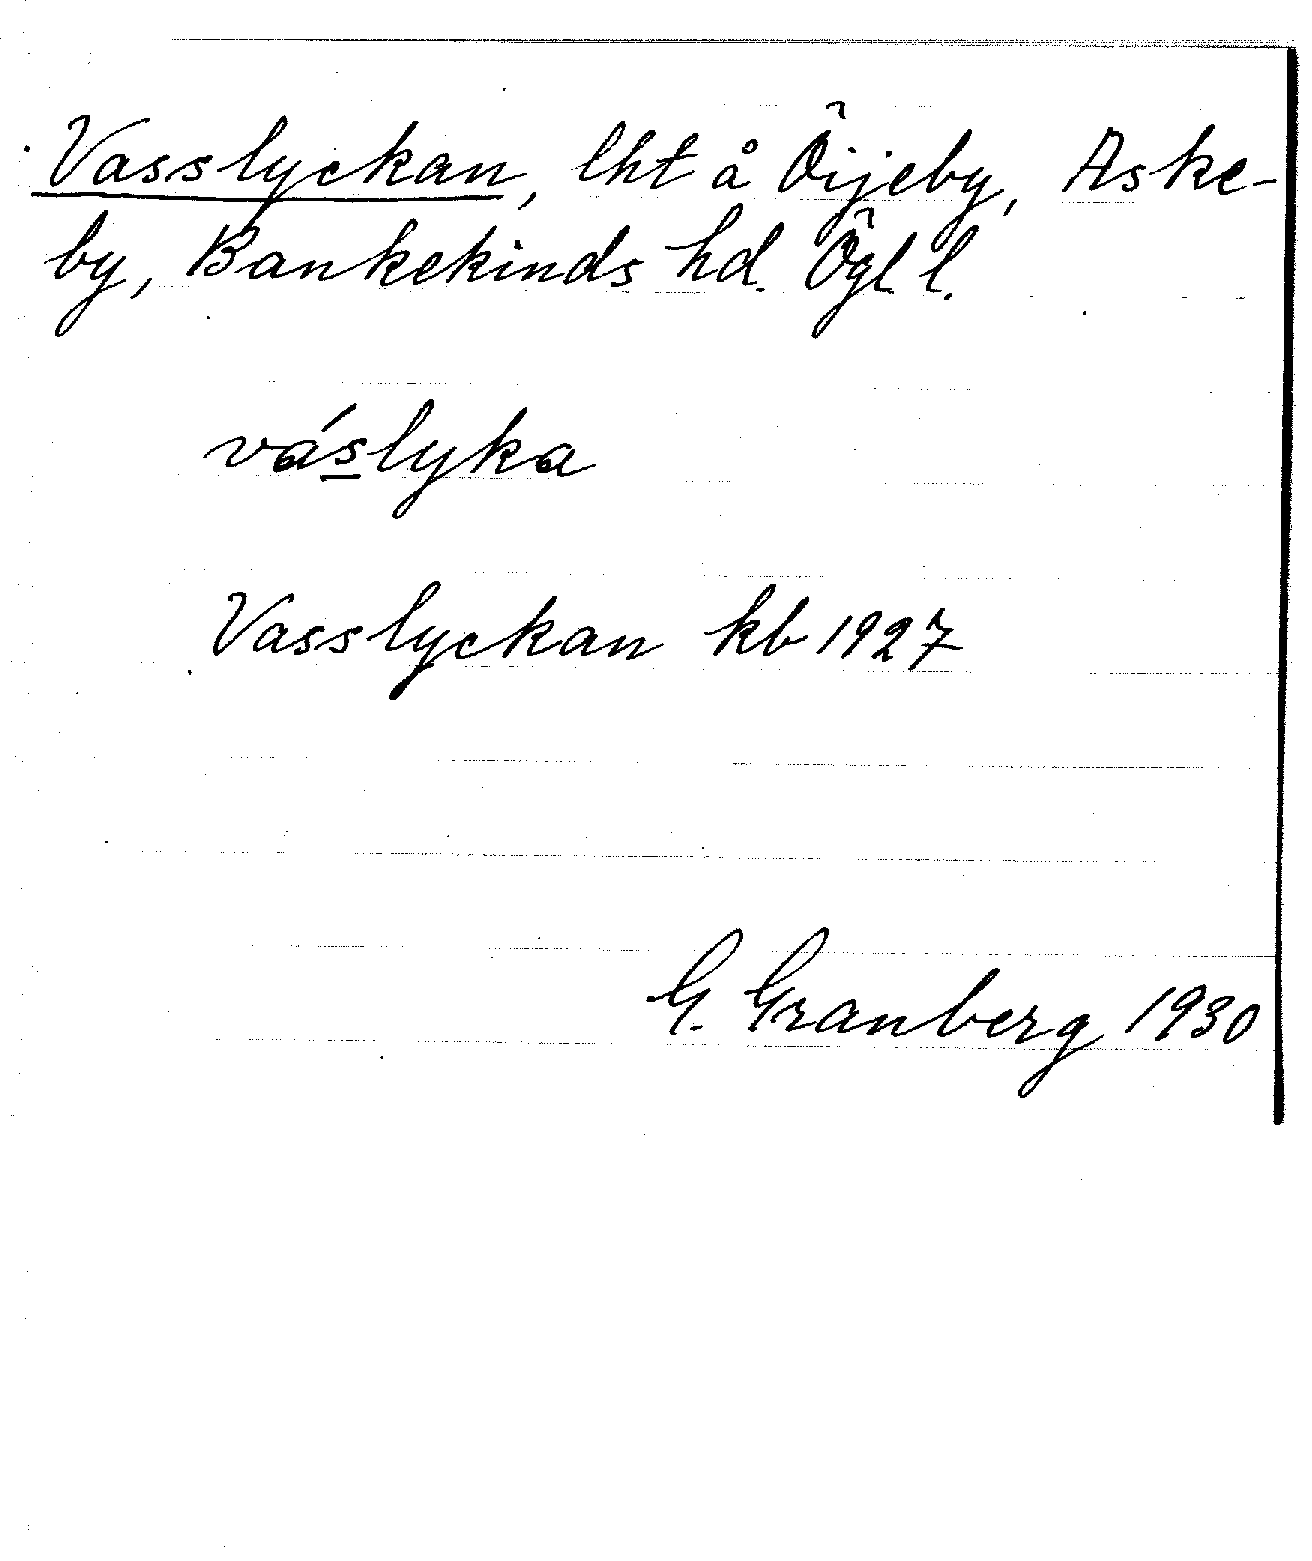 Vasslyckan, lht å Öijeby, Aske-
by, Bankekinds hd. Ögl l.
váslyka
Vasslyckan kb 1927
G. Granberg 1930